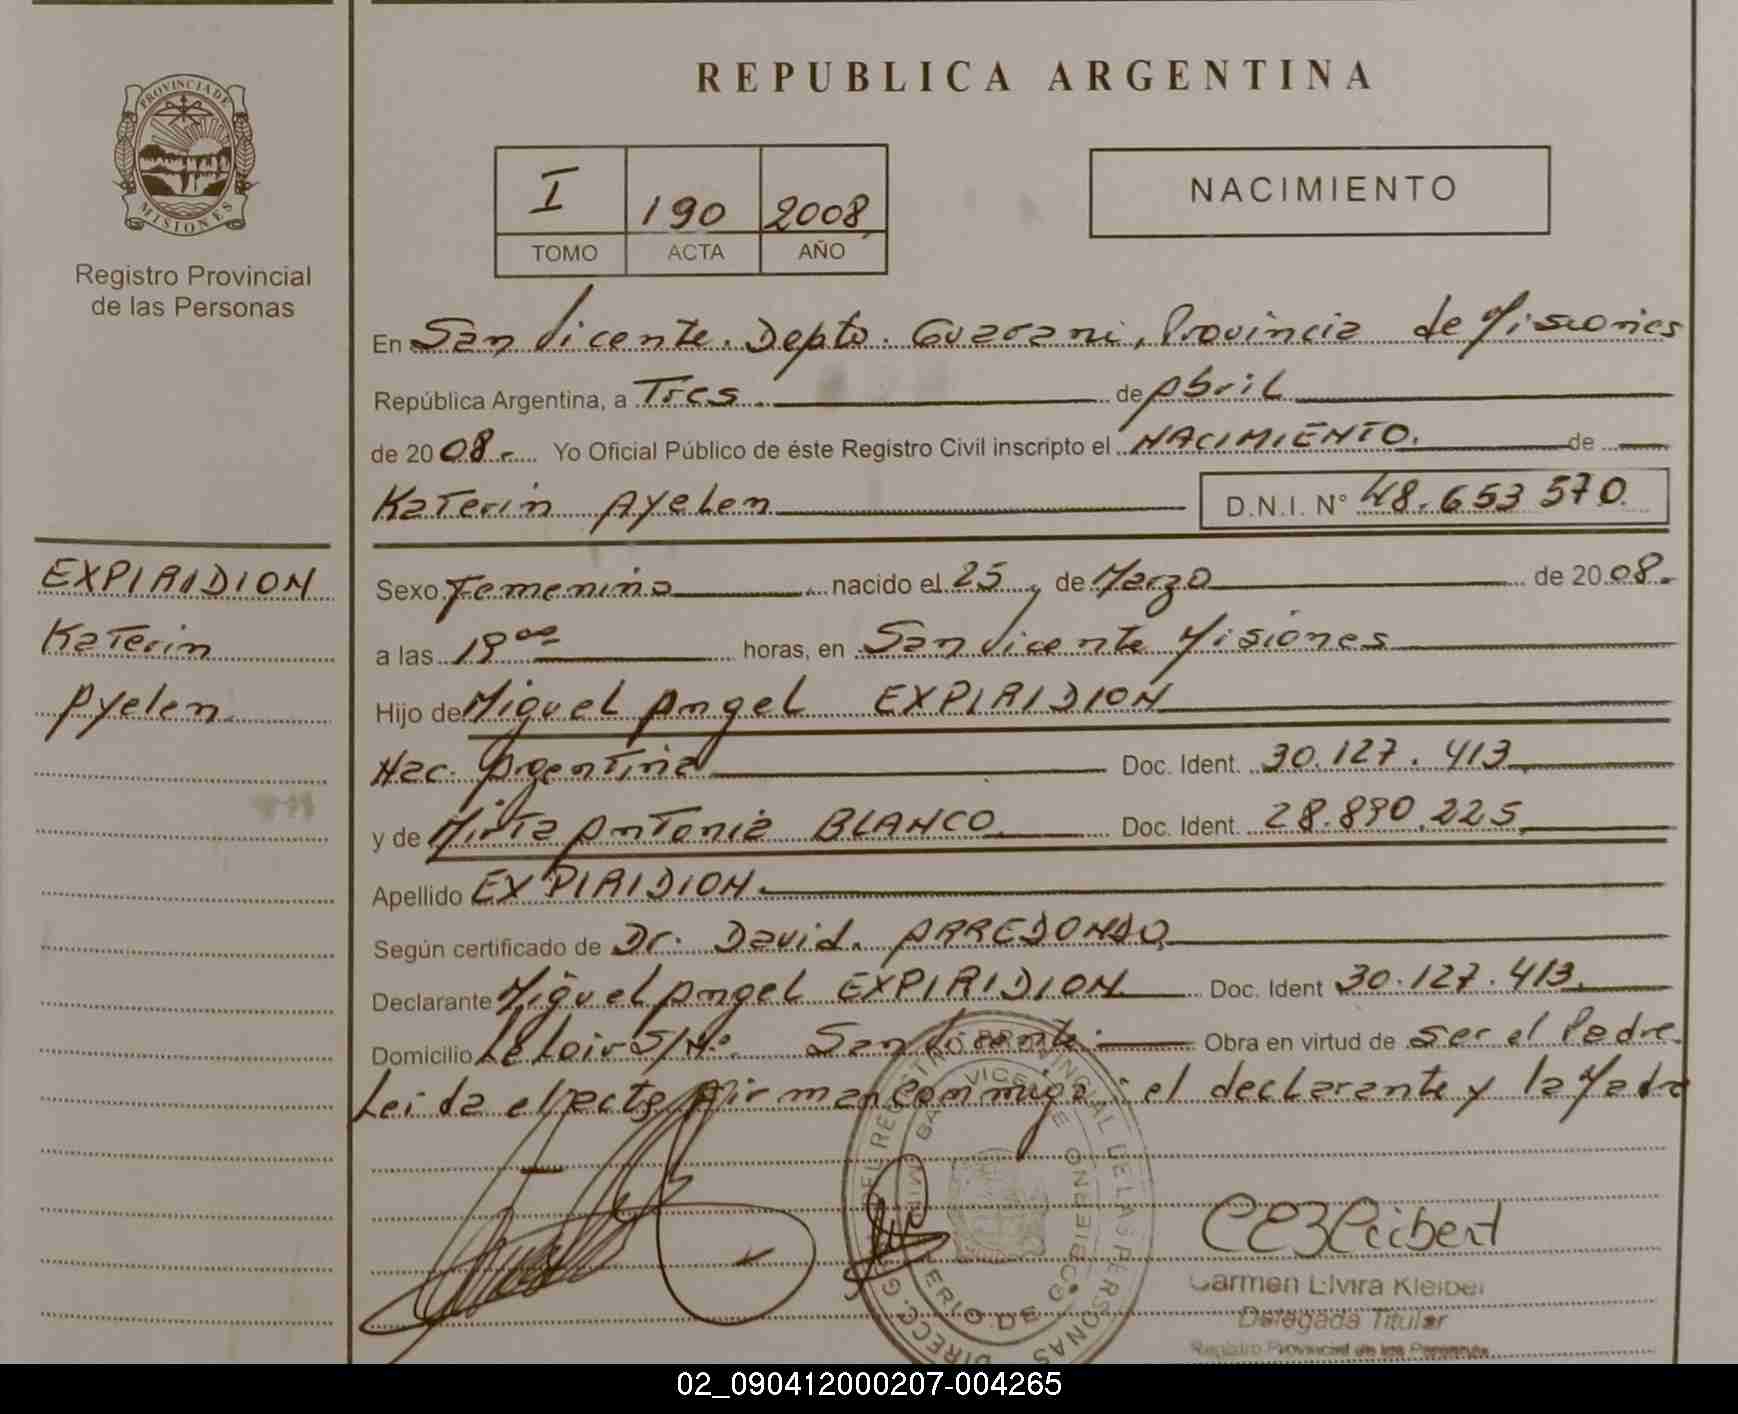 PROVINCIA DE
MISIONES
Registro Provincial
de las Personas
EXPIRIDION
Katerin
Ayelen
REPUBLICA ARGENTINA
I 190 2008
TOMO ACTA AÑO
NACIMIENTO
En San Vicente. Depto. Guarani, Provincia de Misiones
República Argentina, a Tres de Abril
de 2008.- Yo Oficial Público de éste Registro Civil inscripto el NACIMIENTO. de
Katerin Ayelen D.N.I. N° 48.653 570.
Sexo Femenino nacido el 25, de Marzo de 2008.
a las 19 00 horas, en San Vicente Misiones
Hijo de Miguel Angel EXPIRIDION
Nac. Argentina Doc. Ident. 30.127.413
y de Mirta Antonia BLANCO Doc. Ident. 28.890.225
Apellido EXPIRIDION.
Según certificado de Dr. David. ARREDONDO
Declarante Miguel Angel EXPIRIDION Doc. Ident 30.127.413.
Domicilio Le Loir S/Nº San Vicente. Obra en virtud de ser el Padre.
Leida el acta firman conmigo: el declarante y la Madre
Carmen Elvira Kleiber
Delegada Titular
Registro Provincial de las Personas
02_090412000207-004265